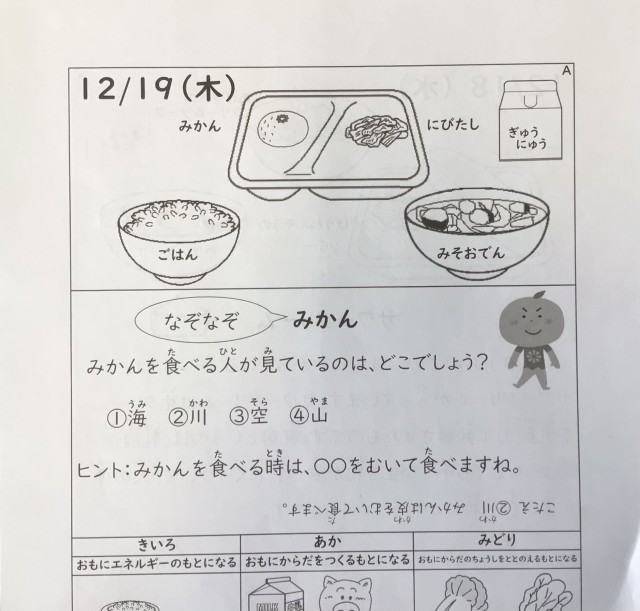 A
12/19(木)
みかん
にびたし
ぎゅう
にゅう
ごはん
みそおでん
なぞなぞ
みかん
みかんを食べる人が見ているのは、どこでしょう?
た ひと み
①海 ②川 ③空 ④山
うみ かわ そら やま
ヒント:みかんを食べる時は、○○をむいて食べますね。
た とき た
こたえ ②川 みかんは皮をむいて食べます。
かわ かわ た
きいろ あか みどり
おもにエネルギーのもとになる おもにからだをつくるもとになる おもにからだのちょうしをととのえるもとになる
MILK